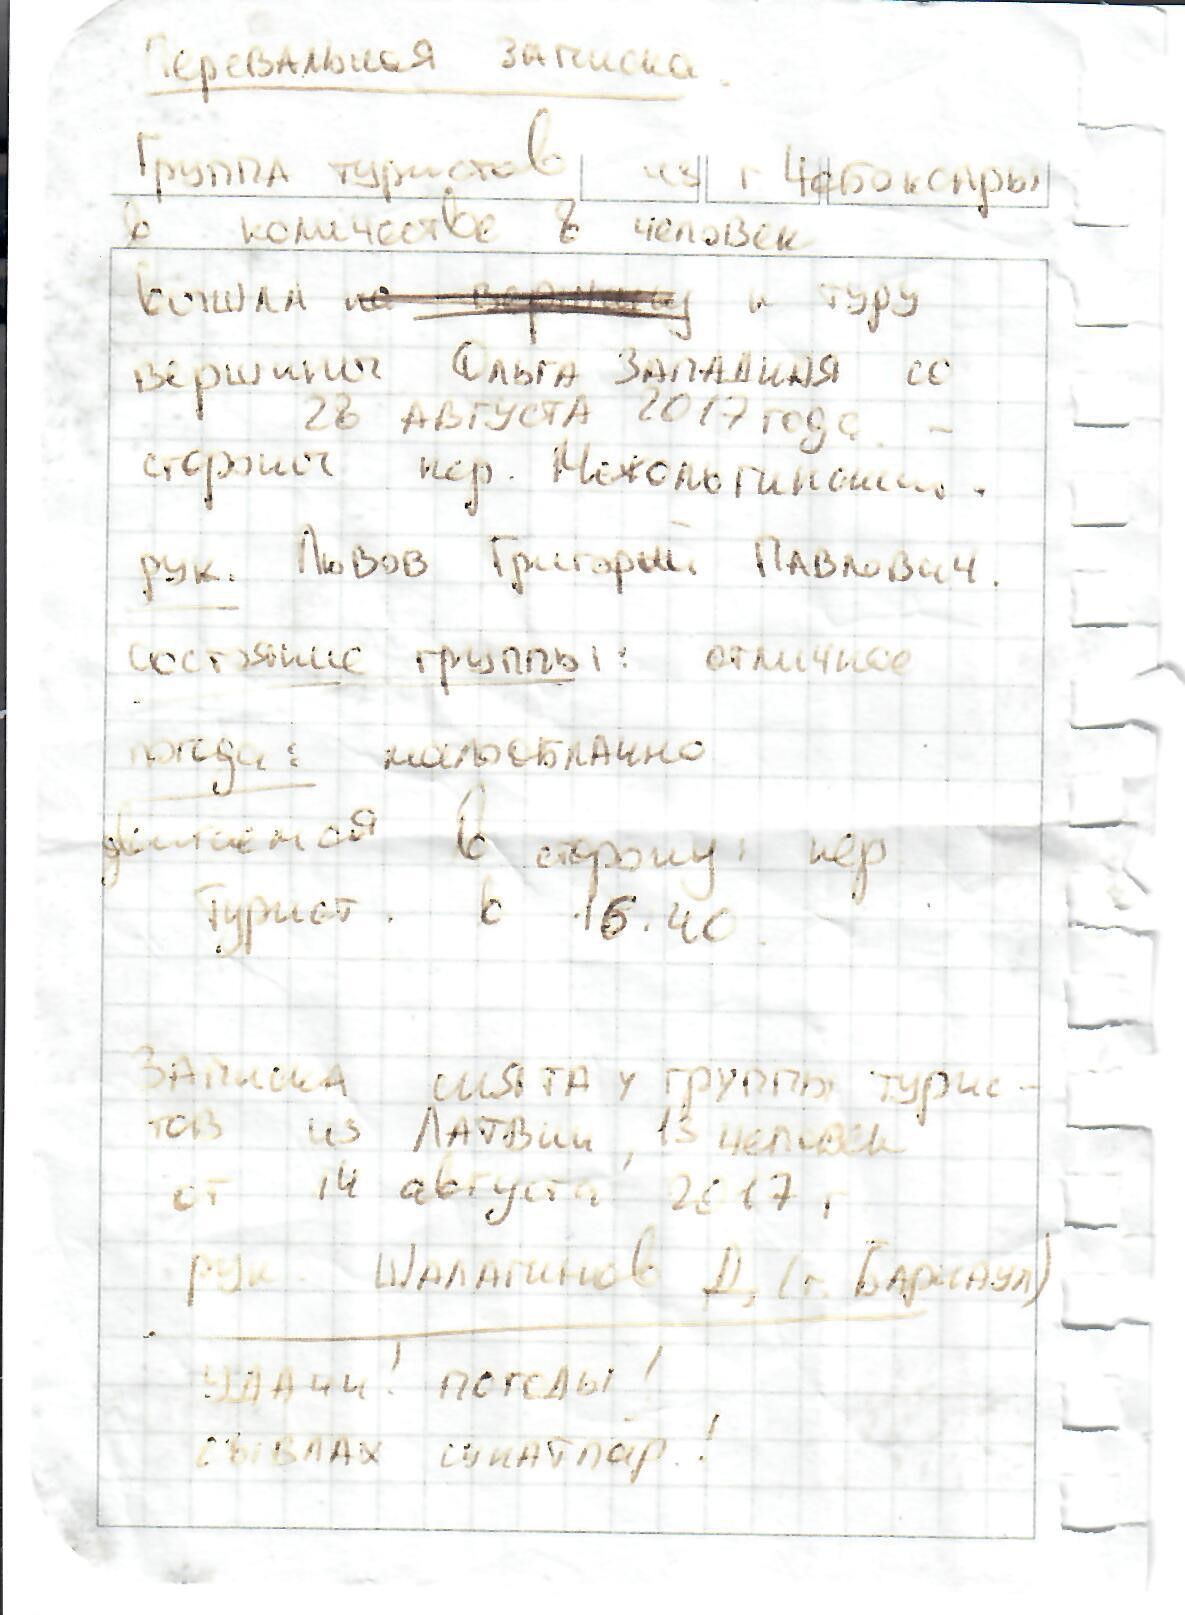 Перевальная записка.
Группа туристов из г Чебоксары
в количестве 8 человек
взошла на вершину к туру
вершины Ольга Западная со
28 августа 2017 года. -
стороны пер. Межольгинский.
рук. Львов Григорий Павлович.
состояние группы: отличное
погода: малооблачно
двигаемся в сторону: пер
Турист. в 16.40.
Записка снята у группы турис-
тов из Латвии, 13 человек
от 14 августа 2017 г
рук. Шалагинов Д, (г. Барнаул)
удачи! погоды!
сывлах сунатпăр!